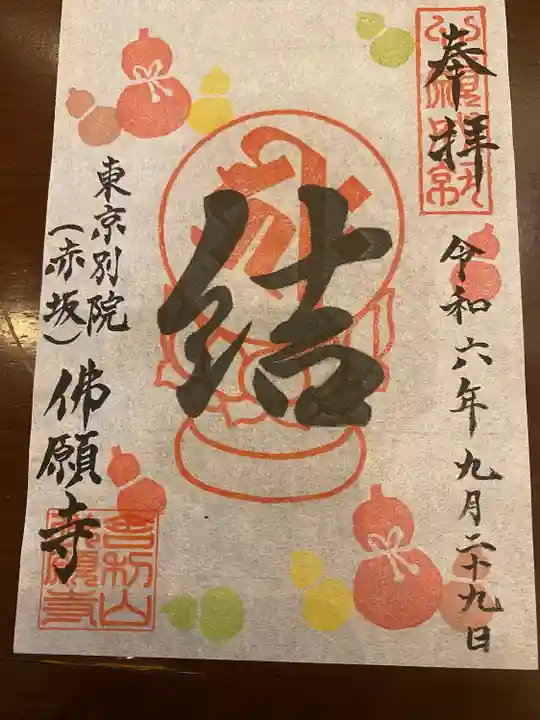 奉拝
令和六年九月二十九日
結
東京別院
（赤坂）
佛願寺